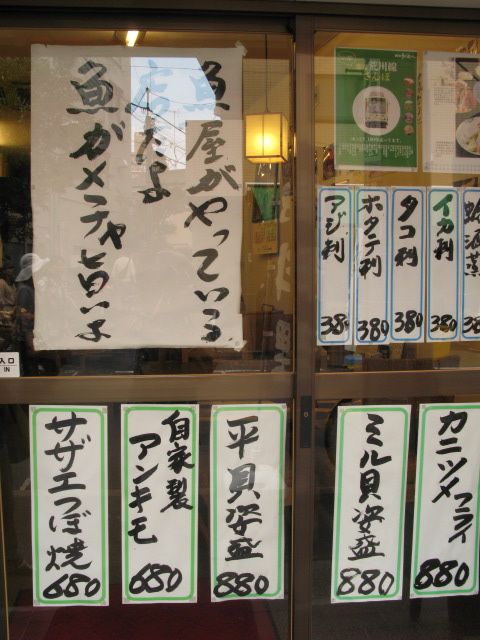 魚屋がやっている
店だよ
魚がメチャ旨いよ
荒川線
さんぽ
蛤酒蒸
38
イカ刺
380
タコ刺
380
ホタテ刺
380
アジ刺
380
入口
IN
カニツメフライ
880
ミル貝姿盛
880
平貝姿盛
880
自家製
アンキモ
680
サザエつぼ焼
680